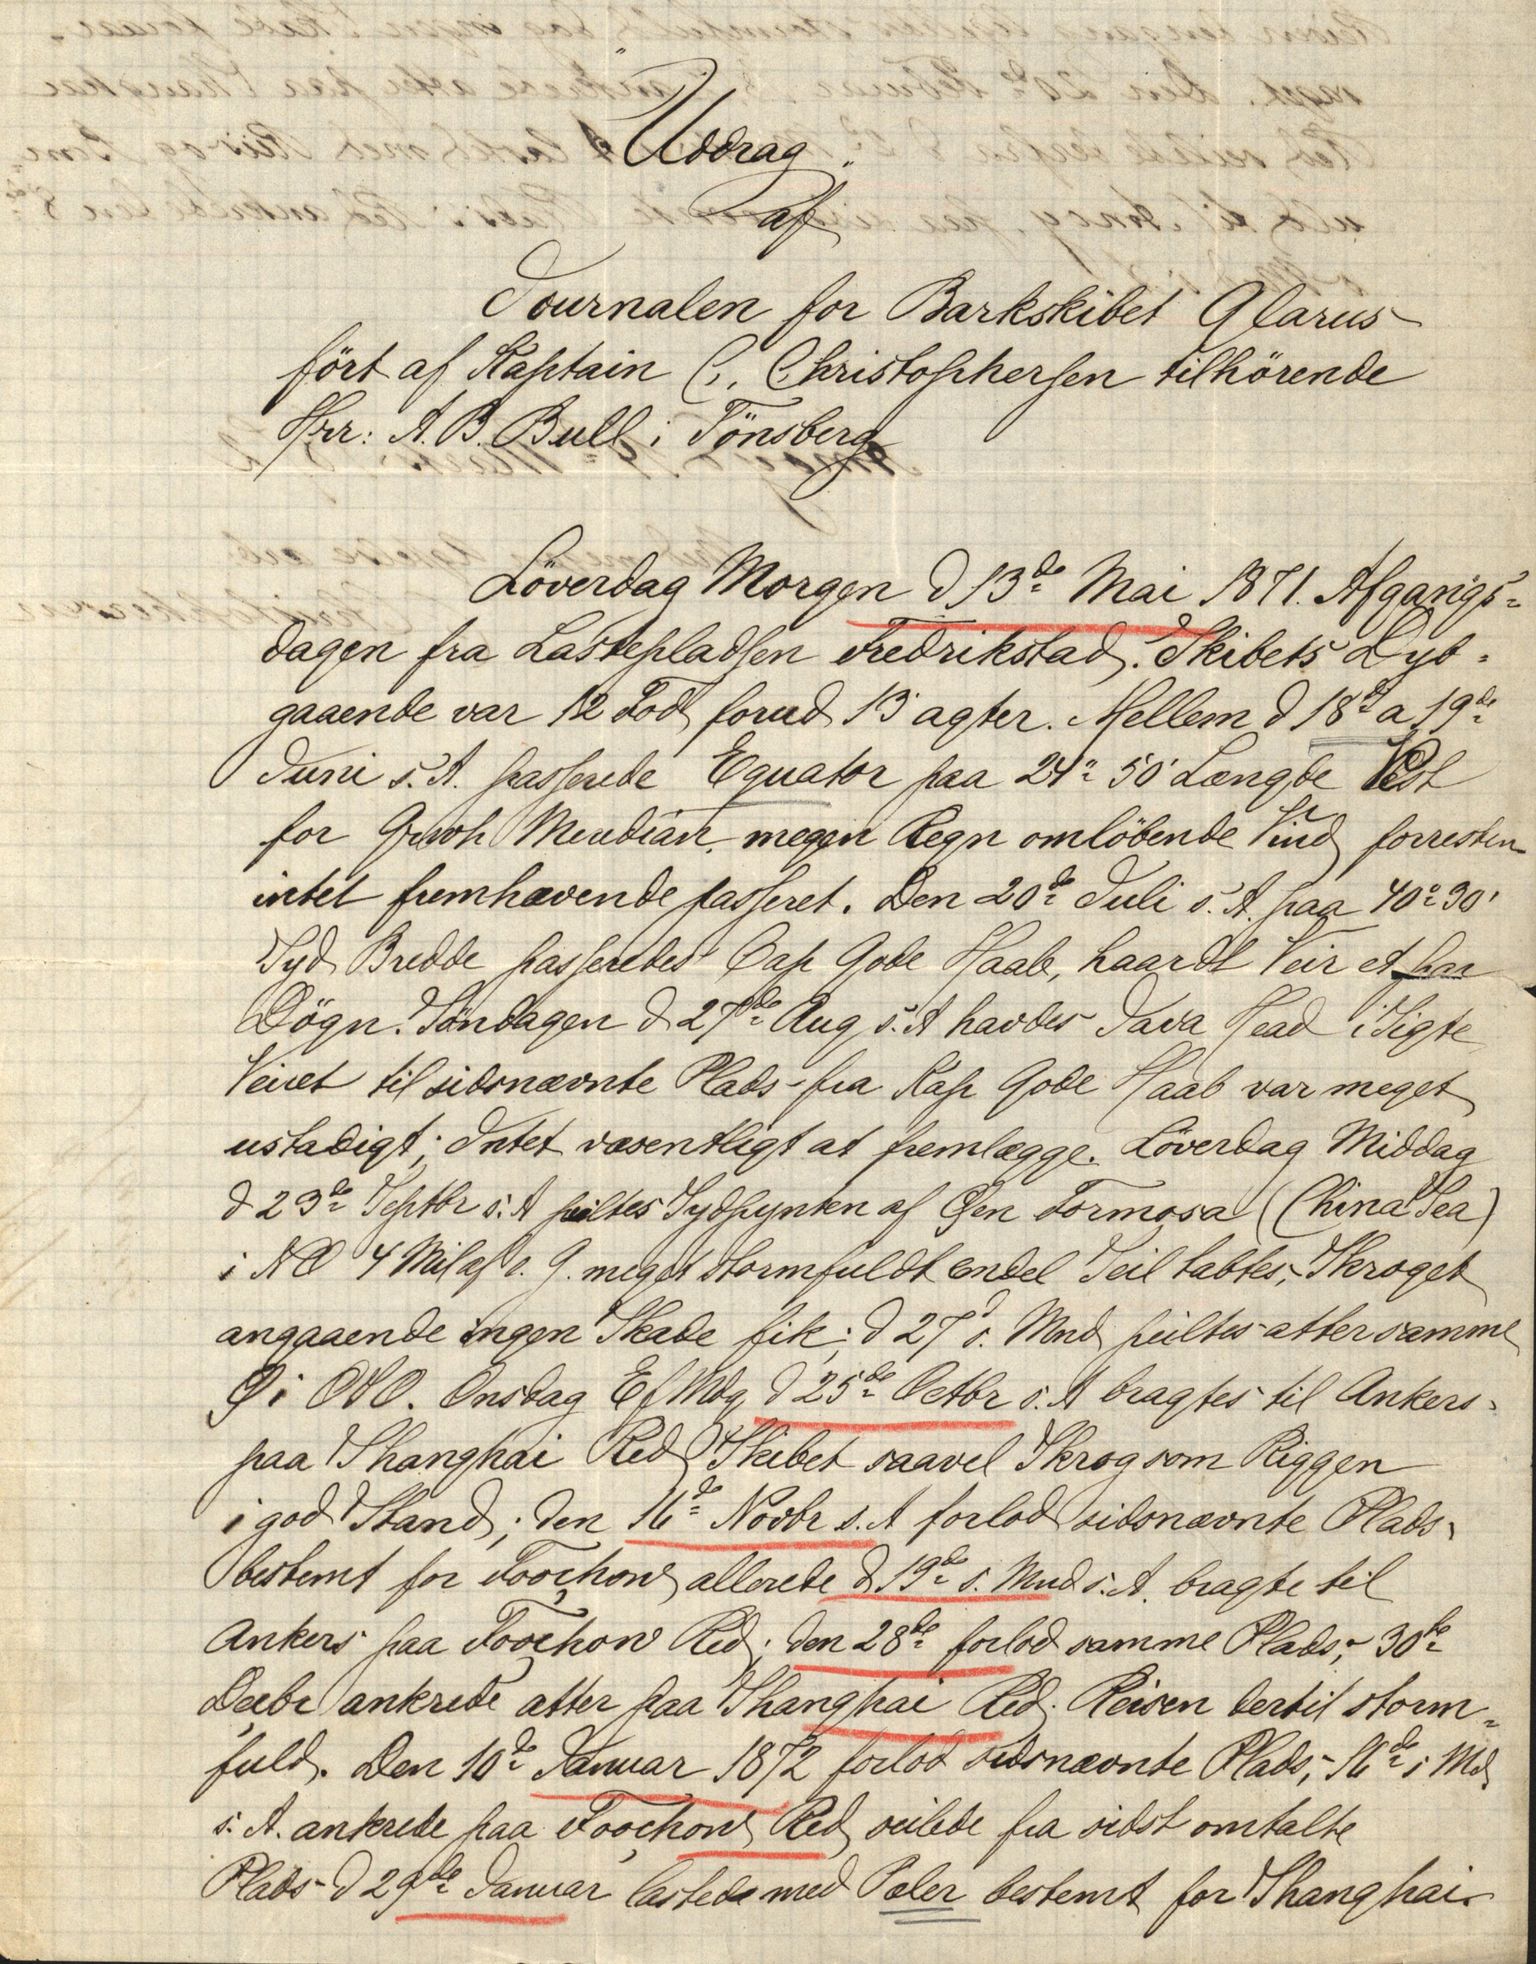 Uddrag
af
Journalen for Barkskibet Glarus
ført af Kaptain C. Christophersen tilhørende
Hrr: A. B. Bull i Tønsberg
Løverdag Morgen d 13de Mai 1871. Afgangs-
dagen fra Lastepladsen Fredrikstad. Skibets Dyb-
gaaende var 12 Fod forud 13 agter. Mellem d 18d a 19de
Juni s. A. passerede Equator paa 24° 50' Længde Vest
for Grwch Meridian, megen Regn omløbende Vind forresten
intet fremhævende passeret. Den 20de Juli s. A. paa 40° 30'
Syd Bredde passeredes Cap Gode Haab, haardt Veir et par
Døgn. Søndagen d 27de Aug s. A havdes Java Head i Sigte
Veiret til sidsnævnte Plads fra Kap Gode Haab var meget
ustadigt; Intet væsentligt at fremlægge. Løverdag Middag
d 23de Septbr s. A peiltes Sydpynten af Øen Formosa (China Sea)
i NO 4 Mil af s. G. meget stormfuldt endel Seil tabtes, Skroget
angaaende ingen Skade fik; d 27d s. Mnd peiltes atter samme
Ø i ONO. Onsdag Ef Mdg d 25de Octbr s. A bragtes til Ankers
paa Shanghai Red Skibet saavel Skrog som Riggen
i god Stand; den 16de Novbr s. A forlod sidsnævnte Plads
bestemt for Foochow, allerede d 19de s. Mnd s. A. bragte til
Ankers paa Foochow Red; den 28de forlod samme Plads, 30de
Decbr ankrede atter paa Shanghai Red. Reisen dertil storm-
fuld. Den 10de Januar 1872 forlod sidsnævnte Plads, 16de i Md
s. A. ankrede paa Foochow Red, seilede fra sidst omtalte
Plads d 29de Januar lastede med Pæler bestemt for Shanghai